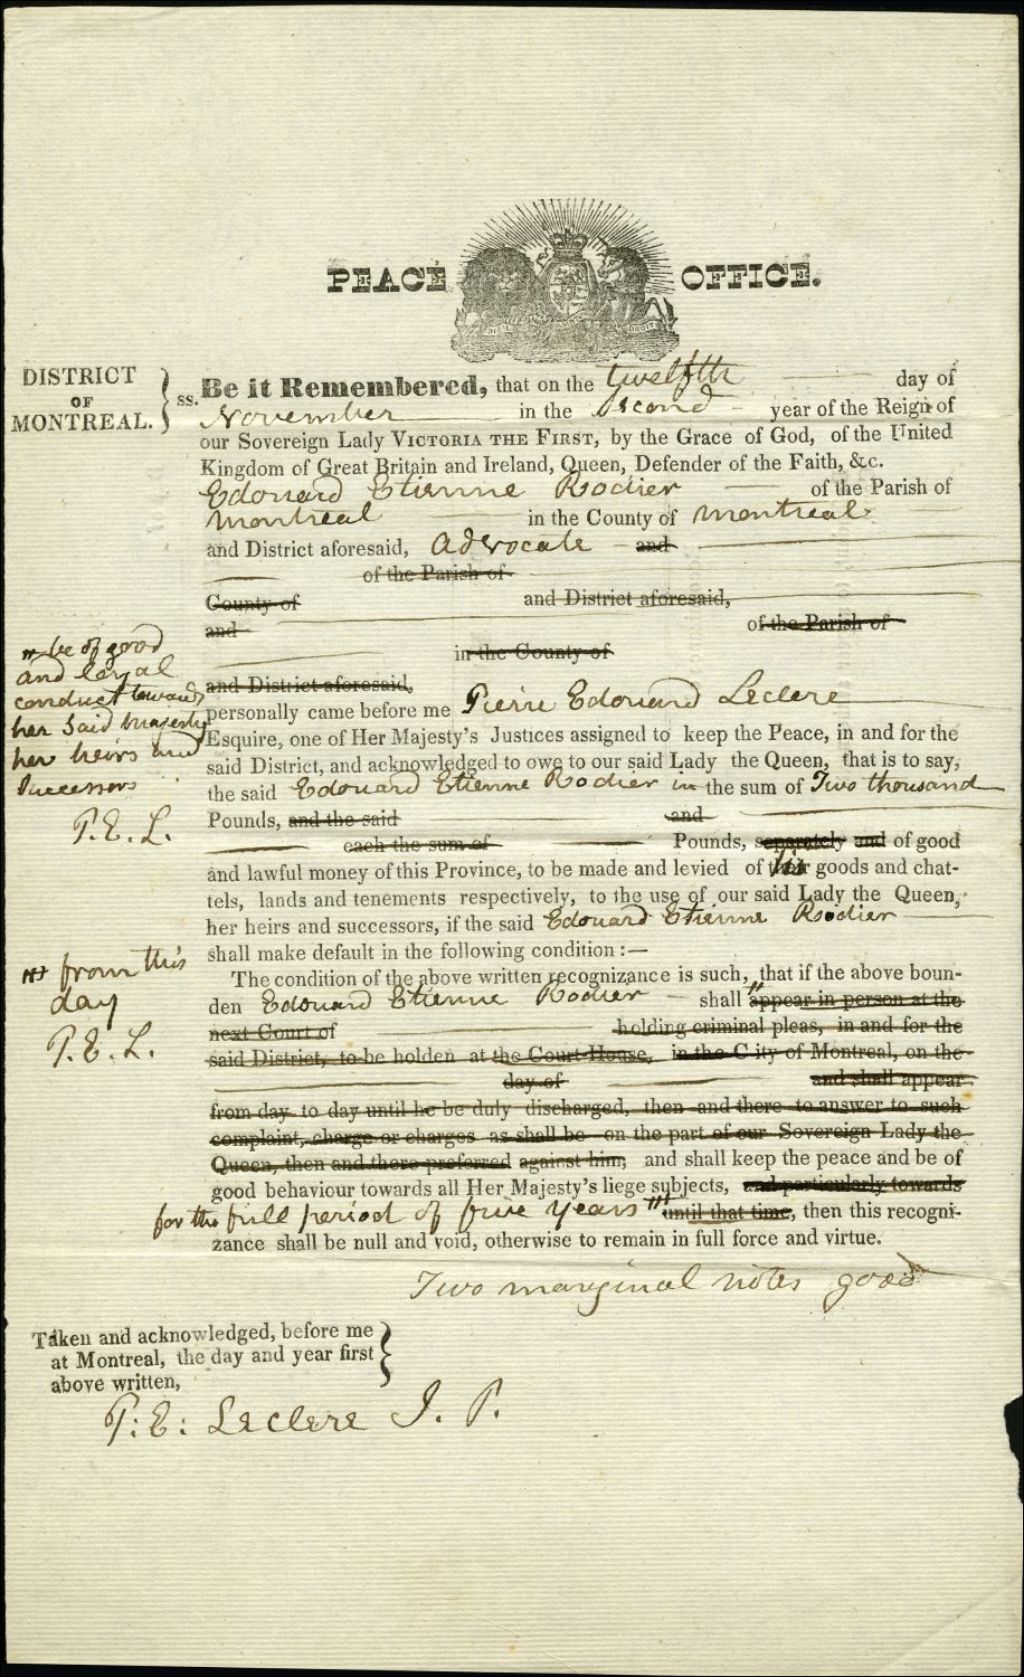 PEACE OFFICE.
DISTRICT
OF
MONTREAL.
ss. Be it Remembered, that on the twelfth day of
November in the second year of the Reign of
our Sovereign Lady VICTORIA THE FIRST, by the Grace of God, of the United
Kingdom of Great Britain and Ireland, Queen, Defender of the Faith, &c.
Edouard Etienne Rodier of the Parish of
Montreal in the County of Montreal
and District aforesaid, Advocate and
of the Parish of
County of and District aforesaid,
and of the Parish of
in the County of
and District aforesaid,
personally came before me Pierre Edouard Leclere
Esquire, one of Her Majesty's Justices assigned to keep the Peace, in and for the
said District, and acknowledged to owe to our said Lady the Queen, that is to say,
the said Edouard Etienne Rodier in the sum of Two thousand
Pounds, and the said and
each the sum of Pounds, separately and of good
and lawful money of this Province, to be made and levied of his goods and chat-
tels, lands and tenements respectively, to the use of our said Lady the Queen,
her heirs and successors, if the said Edouard Etienne Rodier
shall make default in the following condition :—
The condition of the above written recognizance is such, that if the above boun-
den Edouard Etienne Rodier shall " appear in person at the
next Court of holding criminal pleas, in and for the
said District, to be holden at the Court House, in the City of Montreal, on the
day of and shall appear
from day to day until he be duly discharged, then and there to answer to such
complaint, charge or charges as shall be on the part of our Sovereign Lady the
Queen, then and there preferred against him; and shall keep the peace and be of
good behaviour towards all Her Majesty's liege subjects, and particularly towards
for the full period of five years "" until that time, then this recogni-
zance shall be null and void, otherwise to remain in full force and virtue.
Two marginal notes good
" be of good
and loyal
conduct towards
her said Majesty
her heirs and
Successors
P. E. L.
"" from this
day
P. E. L.
Taken and acknowledged, before me
at Montreal, the day and year first
above written,
P: E: Leclere J. P.